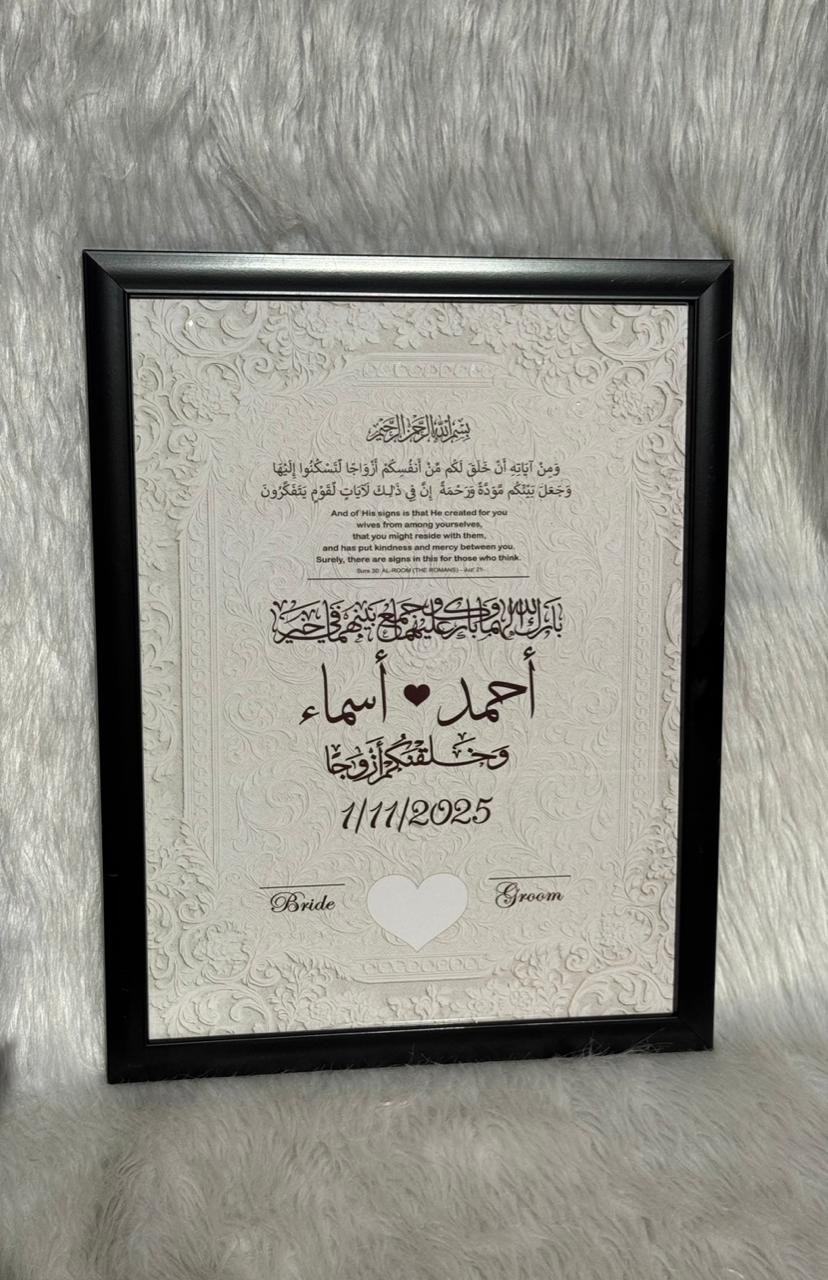 بسم الله الرحمن الرحيم
وَمِنْ آيَاتِهِ أَنْ خَلَقَ لَكُم مِّنْ أَنفُسِكُمْ أَزْوَاجًا لِّتَسْكُنُوا إِلَيْهَا
وَجَعَلَ بَيْنَكُم مَّوَدَّةً وَرَحْمَةً إِنَّ فِي ذَٰلِكَ لَآيَاتٍ لِّقَوْمٍ يَتَفَكَّرُونَ
And of His signs is that He created for you
wives from among yourselves,
that you might reside with them,
and has put kindness and mercy between you.
Surely, there are signs in this for those who think.
Sura 30: AL-ROOM (THE ROMANS) - Juz' 21
بارك الله لهما وبارك عليهما وجمع بينهما في خير
أحمد ♥ أسماء
وَخَلَقْنَكُمْ أَزْوَجًا
1/11/2025
Bride
Groom